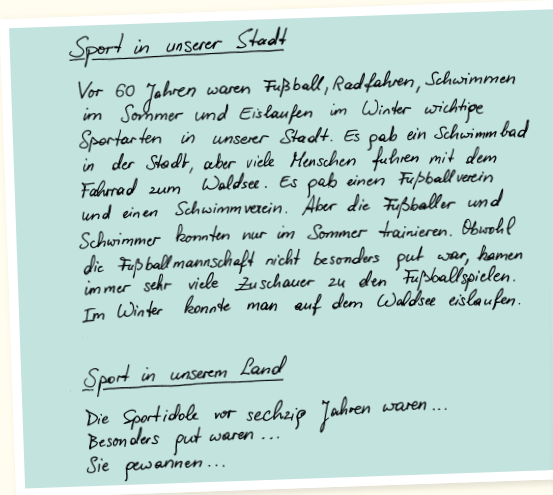 Sport in unserer Stadt
Vor 60 Jahren waren Fußball, Radfahren, Schwimmen
im Sommer und Eislaufen im Winter wichtige
Sportarten in unserer Stadt. Es gab ein Schwimmbad
in der Stadt, aber viele Menschen fuhren mit dem
Fahrrad zum Waldsee. Es gab einen Fußballverein
und einen Schwimmverein. Aber die Fußballer und
Schwimmer konnten nur im Sommer trainieren. Obwohl
die Fußballmannschaft nicht besonders gut war, kamen
immer sehr viele Zuschauer zu den Fußballspielen.
Im Winter konnte man auf dem Waldsee eislaufen.
Sport in unserem Land
Die Sportidole vor sechzig Jahren waren ...
Besonders gut waren ...
Sie gewannen ...